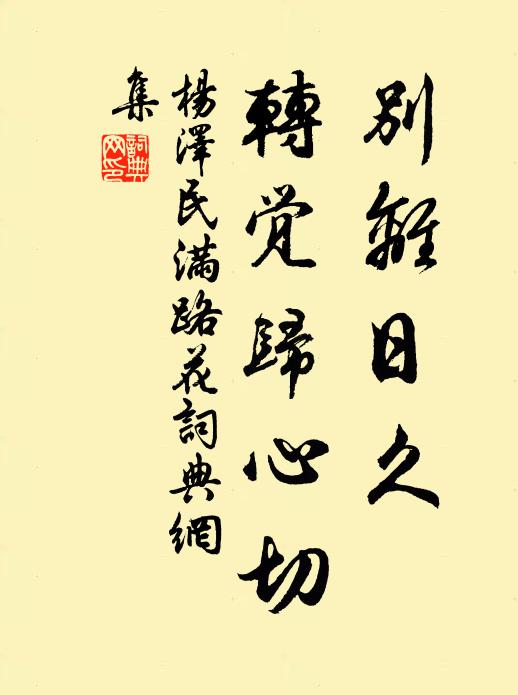 别離日久
轉覚歸心切
楊澤民满路花詞典網
集
詞典網印